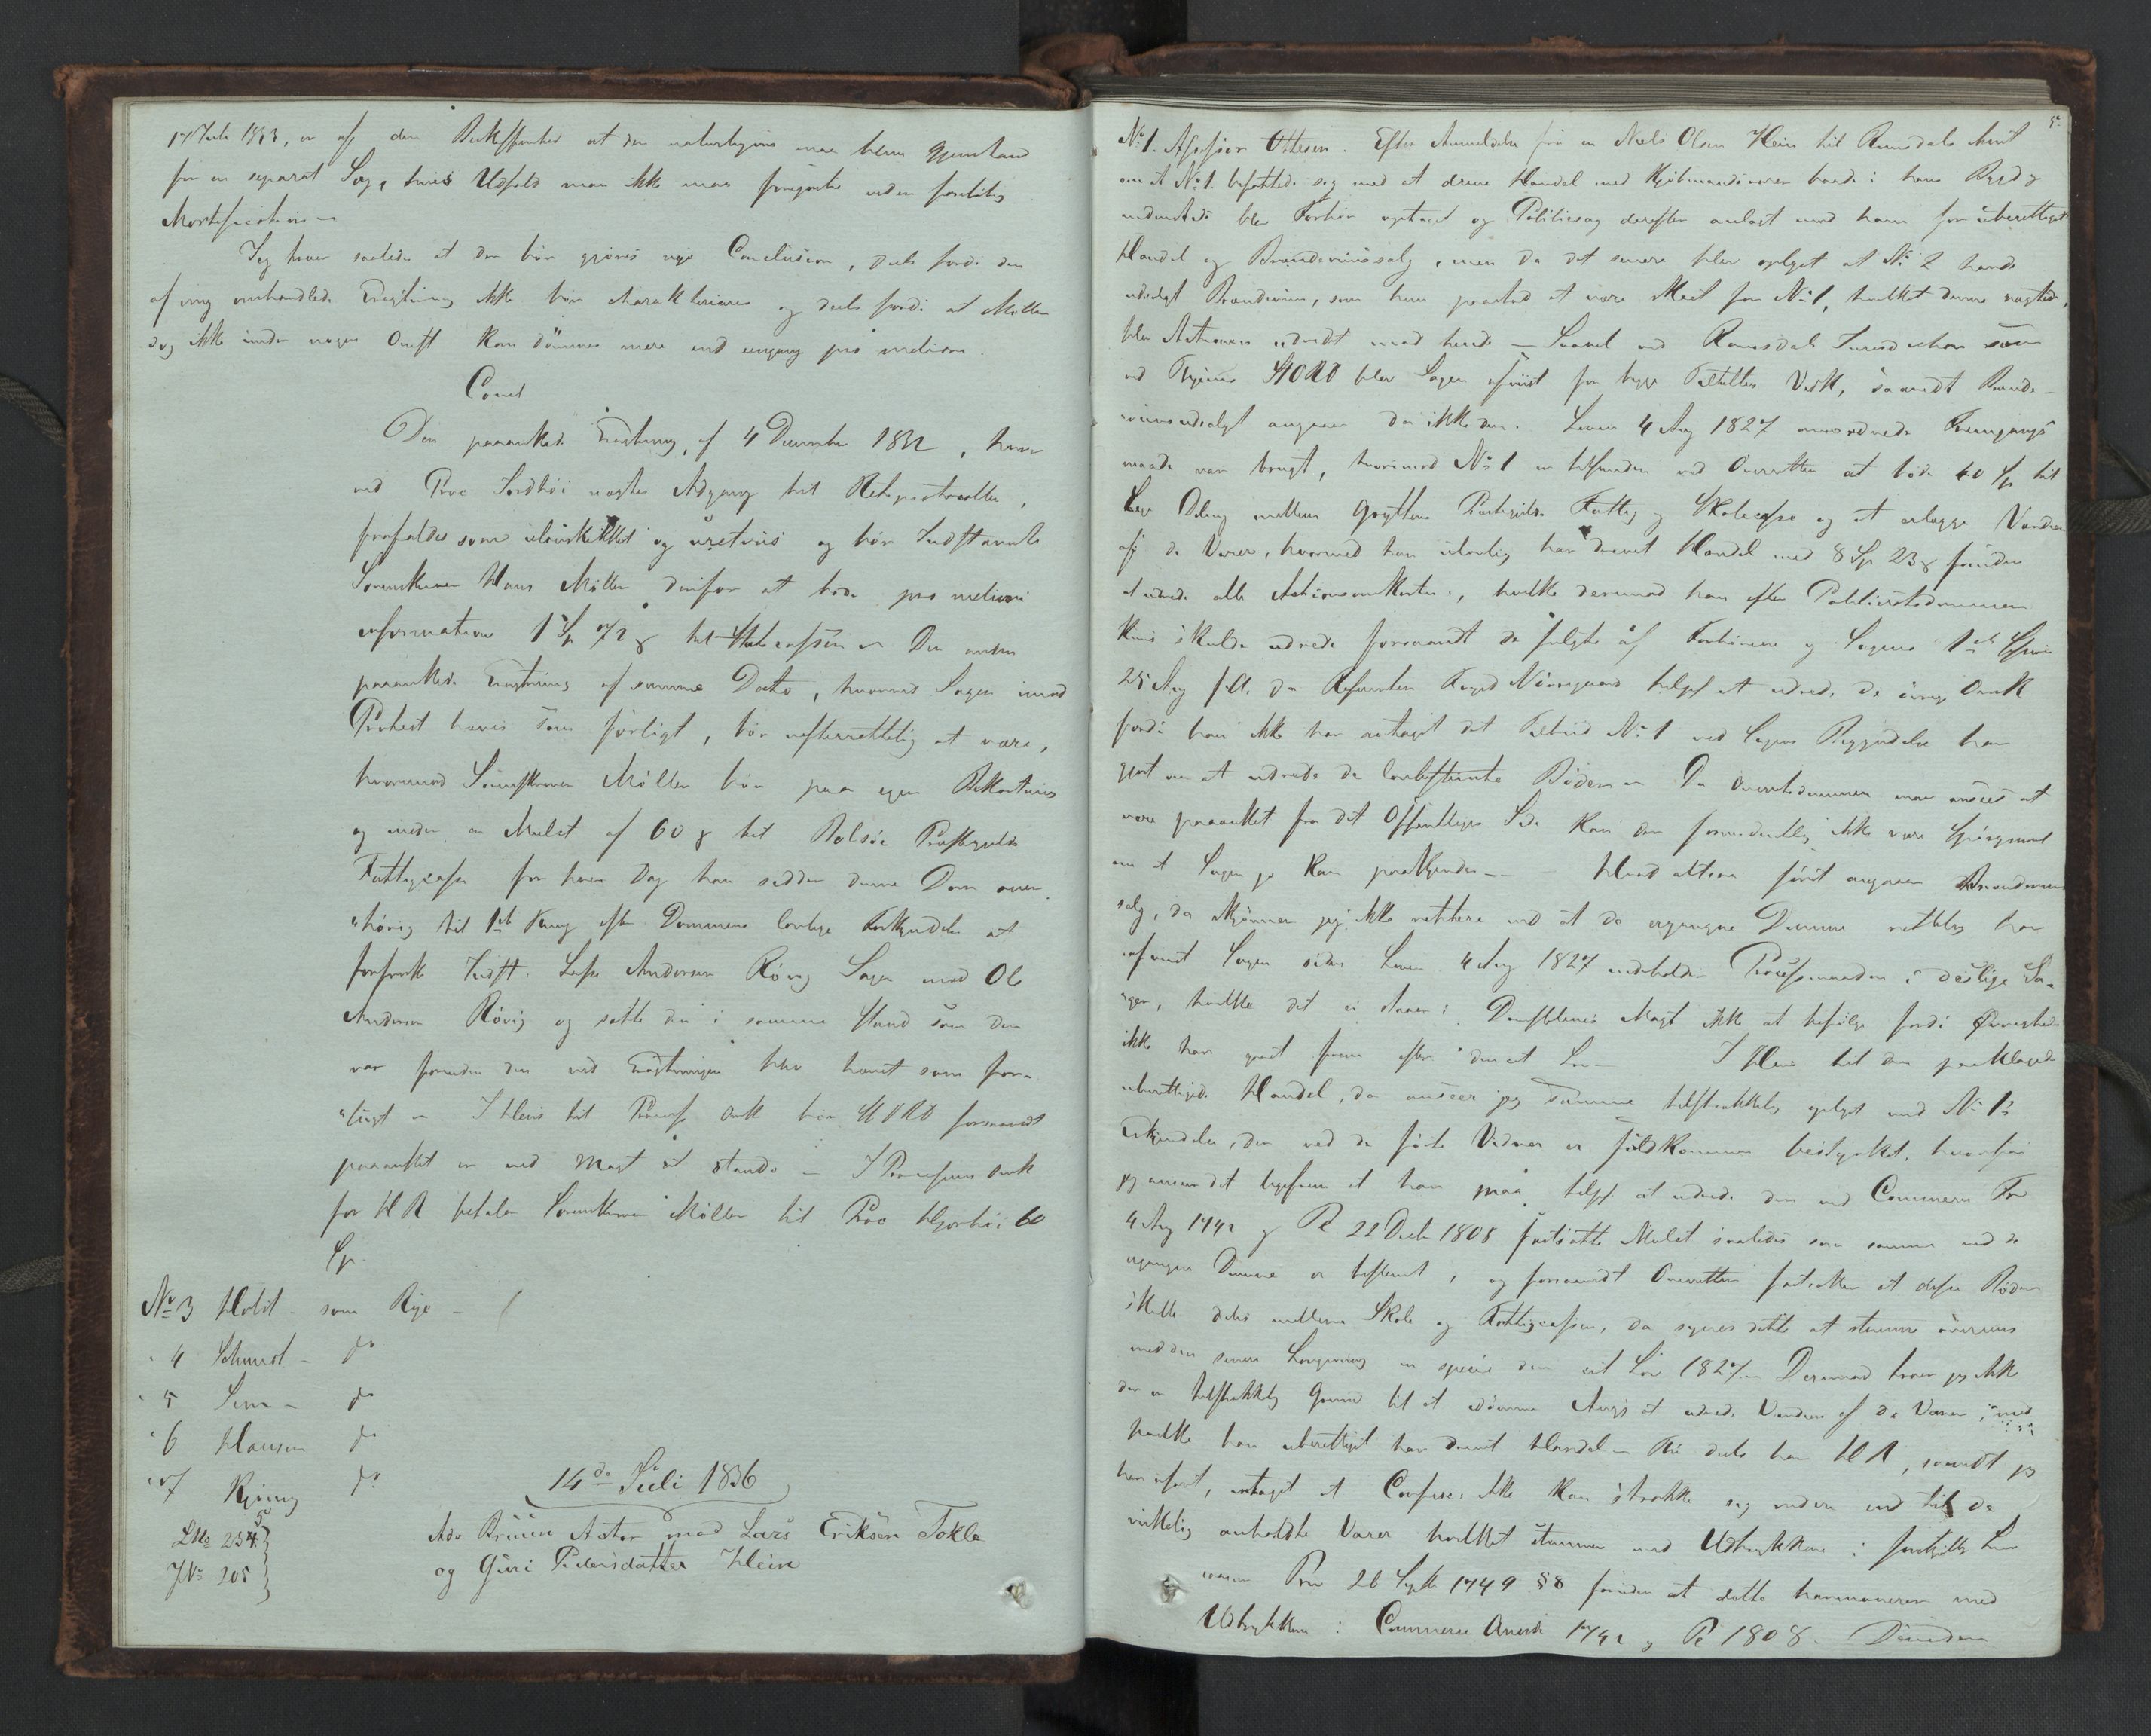 17 Juli 1813, er af den Beskaffenhed at den naturligvis maa blive Gjenstand
for en separat Sag, hvis Udfald man ikke maa foregribe uden forelöbig
Mortification
Jeg troer saaledes at der bör gjöres nye Conclusion, deels fordi den
af mig omhandlede Vægring ikke bör charakteriseres og deels fordi at Möller
dog ikke under nogen Omst kan dömmes mere end eengang pro melior.
Concl
Den paaankede Vægtring, af 4 December 1832, hvor
ved Proc Hjorthöi nægtes Adgang til Retsprotocollen,
frafaldes som ulovskikket og uretviis og bör Indstævnte
Sorenskriver Hans Möller derfor at böde pro meliori
informatione 1 Sp 72 ß til Statscassen. Den anden
paaankede Vægtring af samme Dato, hvorved Sagen imod
Protest hæves som forligt, bör uefterrettelig at være,
hvorimod Sorenskriver Möller bör paa egen Bekostning
og under en Mulct af 60 ß til Bolsöe Præstegjelds
Fattigcasse for hver Dag han sidder denne Dom over-
"hörig til 1st Ting efter Dommens lovlige Forkyndelse at
foretage Indst. Lasse Andersen Rövig Sagen mod Ole
Andersen Rövig og sætte den i samme Stand som den
var forinden den ved Vægtringen blev hævet som for-
"ligt – I Hens til Procss Omk bör StORD forsaavidt
paaanket er ved Magt at stande – I Processens Omk
for HR betaler Sorenskriver Möller til Proc Hjorthöi 60
Sp.
No 3 Holst – som Rye –
" 4 Schmidt – do
" 5 Sem – do
" 6 Hansen do
" 7 Björing do
14de Juli 1836
LNo 254
JNo 205
Adv Bruun Actor mod Lars Eriksen Tokle
og Guri Pedersdatter Hein
5.
No 1. Assessor Ottesen. Efter Anmeldelse fra en Niels Olsen Hein til Romsdals Amt
om at No 1. befattede sig med at drive Handel med Kjöbmandsvarer baade i hans Bygd og
andensteds blev Forhör optaget og Politiesag derefter anlagt mod ham for uberettiget
Handel og Brændeviinssalg, men da det senere blev oplyst at No 2 havde
udsolgt Brændeviin, som hun paastod at være eiet for No 1, hvilket denne nægtede,
blev Actionen udvidt mod hende – Saavel ved Romsdals Jurisdiction som
ved Thjems StORD blev Sagen afviist for begge Tiltaltes Vedk, saavidt Brænde-
viinsudsalget angaaer da ikke den i Loven 4 Aug 1827 anordnede Fremgangs
maade var brugt, hvorimod No 1 er tilfunden ved Overretten at böde 40 Sp til
lige Deling mellem Gryttens Præstegjelds Fattig og Skolecasse og at erlægge Værdien
af de Varer, hvormed han ulovlig har drevet Handel med 8 Sp 23 ß foruden
at udrede alle Actionsomkostn., hvilke derimod han efter Politieretsdommen
kuns skulde udrede forsaavidt de fulgte af Forhörene og Sagens 1ste
25 Aug f.A. da Referenten Foged Nörregaard tilpl at udrede de övrige Omk
fordi han ikke har antaget det Tilbud No 1 ved Sagens Begyndelse har
gjort om at udrede de lovbestemte Böder – Da Overretsdommen maa ansees at
være paaanket fra det Offentliges Side kan der formodentlig ikke være Spörgsmaal
om at Sagen jo kan paakjendes – Hvad altsaa först angaaer Brændeviins
salg, da skjönner jeg ikke rettere end at de ergangne Domme rettelig har
afviist Sagen siden Loven 4 Aug 1827 indeholder Procesmaaden i deslige Sa-
"ger, hvilke det ei staaer i Domstolenes Magt ikke at befölge fordi Övrigheden
ikke har gaaet frem efter den cit Lov – I Hens til den paaklagede
uberettigede Handel, da anseer jeg samme tilstrækkelig oplyst ved No 1s
Erkjendelse, der ved de förte Vidner er fuldkommen bestyrket, hvorfor
jeg anseer det ligefrem at han maa tilpl at udrede den ved Commerce For
4 Aug 1742 og Pl 22 Decbr 1808 fastsatte Mulct saaledes som samme ved de
ergangne Domme er bestemt, og forsaavidt Overretten fastsætter at disse Böder
skulle deles mellem Skole og Fattigcassen, da synes dette at stemme overeens
med den senere Lovgivning in specie den cit Lov 1827. Derimod troer jeg ikke
der er tilstrækkelig Grund til at idömme Angj at udrede Værdien af de Varer, med
hvilke han uberettiget har drevet Handel – Thi deels har HR, saavidt jeg
har erfaret, antaget at Confisc: ikke kan strække sig videre end til de
virkelig anholdte Varer hvilket stemmer med Udtrykkene i forskjellige Love
saasom Prov 26 Septbr 1749 §8 foruden at dette harmonerer med
Udtrykkene i Commerce Anordn 1742 og Pl 1808. Desuden